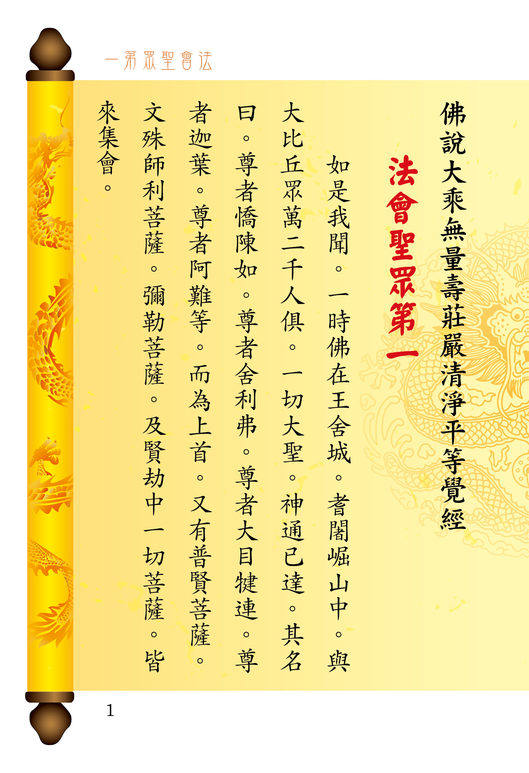 一第眾聖會法
佛說大乘無量壽莊嚴清淨平等覺經
法會聖眾第一
如是我聞。一時佛在王舍城。耆闍崛山中。與
大比丘眾萬二千人俱。一切大聖。神通已達。其名
曰。尊者憍陳如。尊者舍利弗。尊者大目犍連。尊
者迦葉。尊者阿難等。而為上首。又有普賢菩薩。
文殊師利菩薩。彌勒菩薩。及賢劫中一切菩薩。皆
來集會。
1